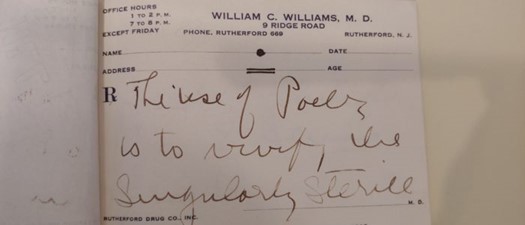 OFFICE HOURS
1 TO 2 P. M.
7 TO 8 P. M.
EXCEPT FRIDAY
WILLIAM C. WILLIAMS, M. D.
9 RIDGE ROAD
PHONE, RUTHERFORD 669 RUTHERFORD, N. J.
NAME DATE
ADDRESS AGE
R The use of Poetry
is to vivify the
Singularly Sterile
M. D.
RUTHERFORD DRUG CO., INC.